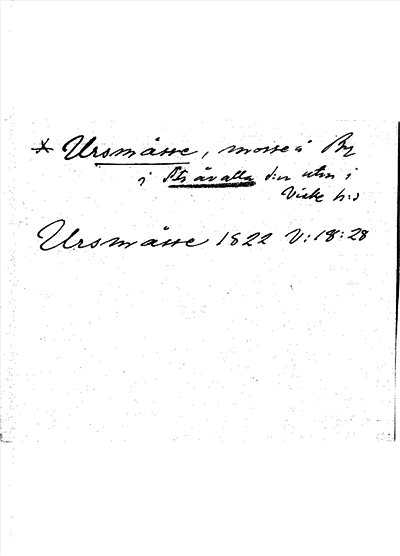 * Ursmåsse, mosse i By
i Stråvalla s:n utm i
Viske h:d
Ursmåsse 1822 V:18:28